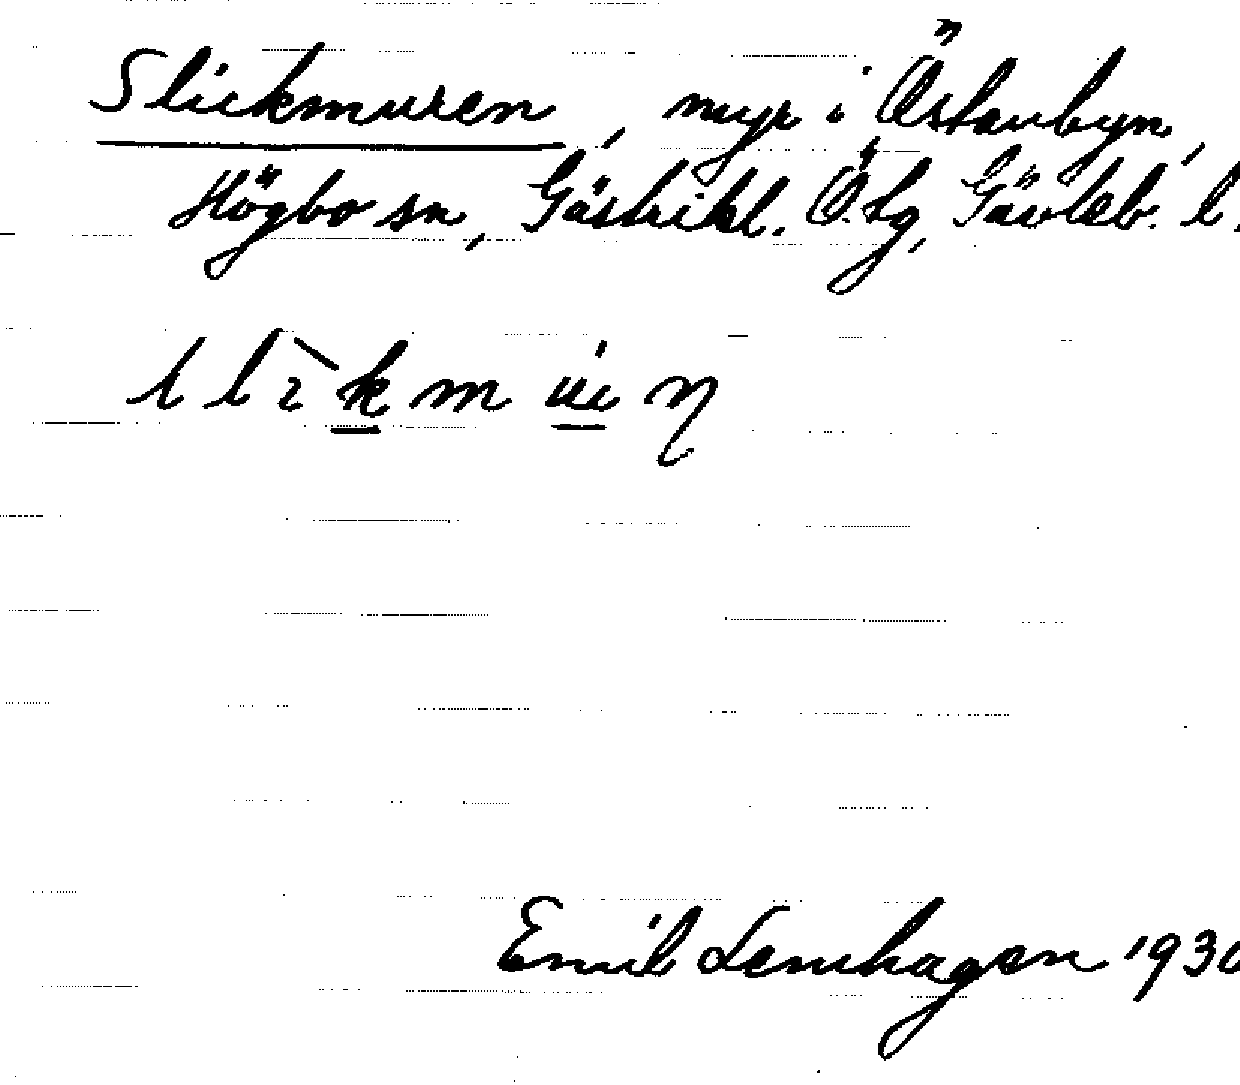 Slickmuren, myr i Östanbyn,
Högbo sn, Gästrikl. Ö. tg, Gävleb. l.
Emil Lenhagen 1930